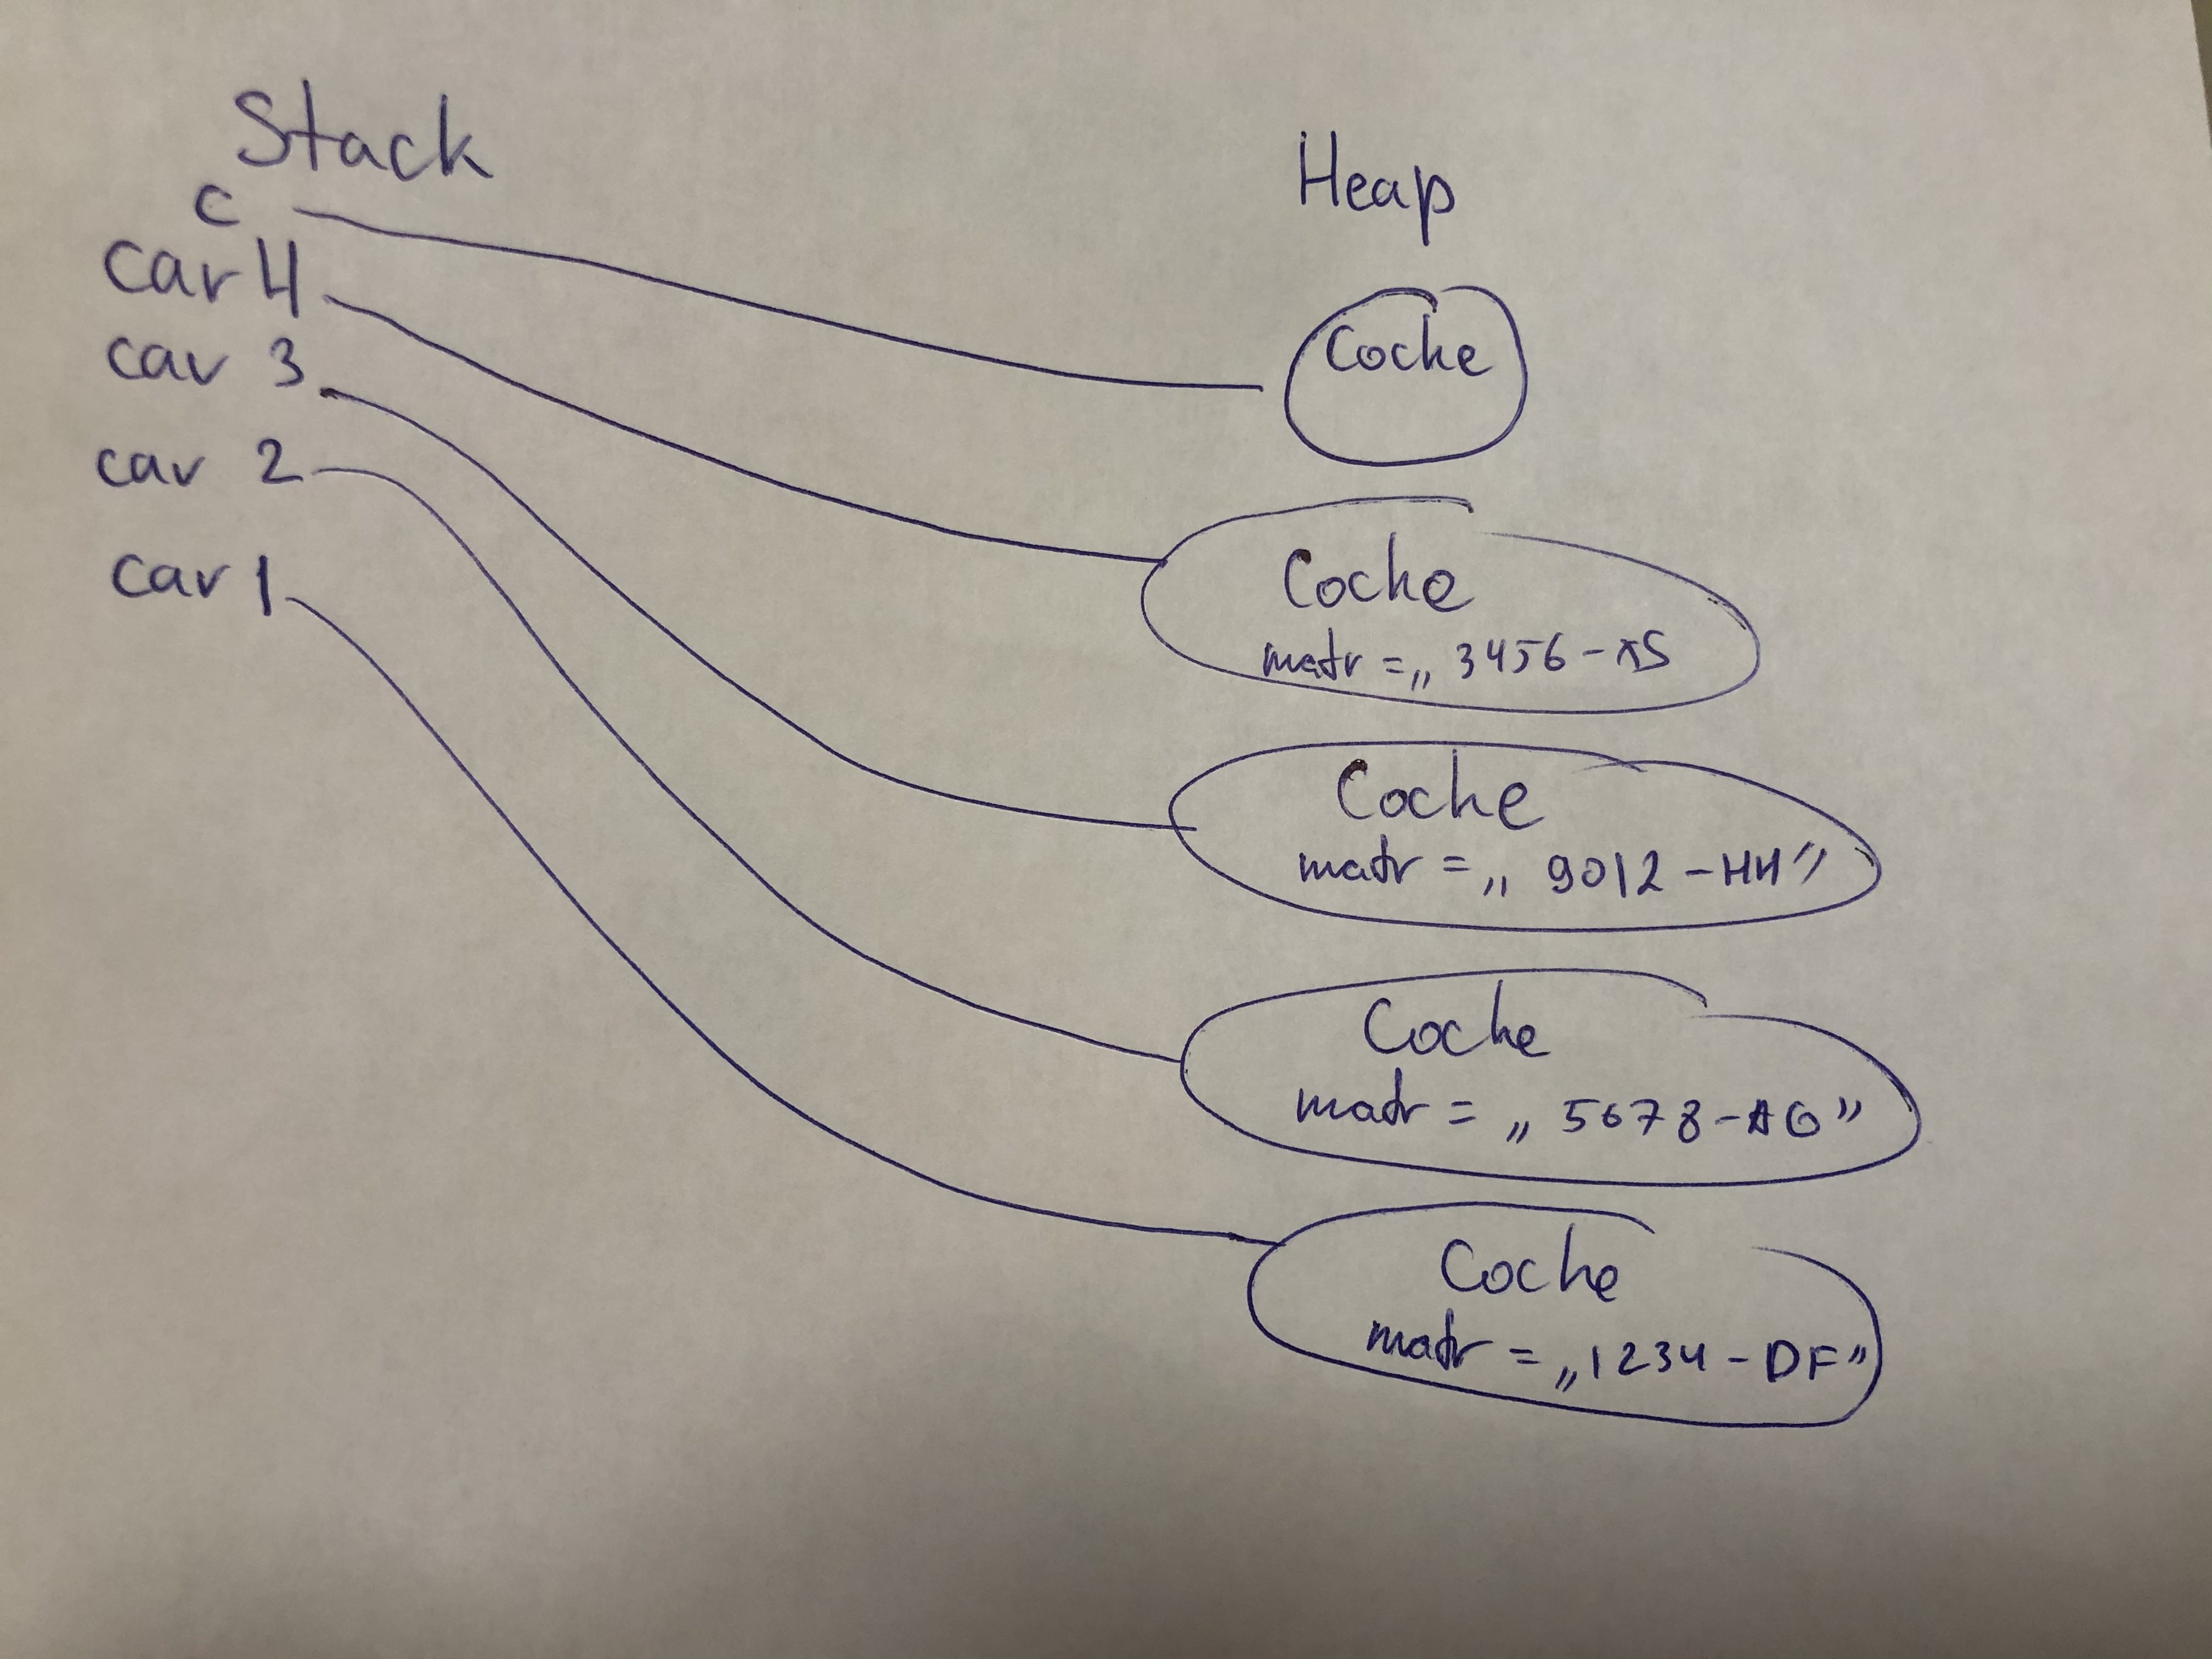 Stack
c
car 4
car 3
car 2
car 1
Heap
Coche
Coche
matr = „ 3456-XS
Coche
matr = „ 9012-HH”
Coche
matr = „ 5678-AG”
Coche
matr = „1234-DF”